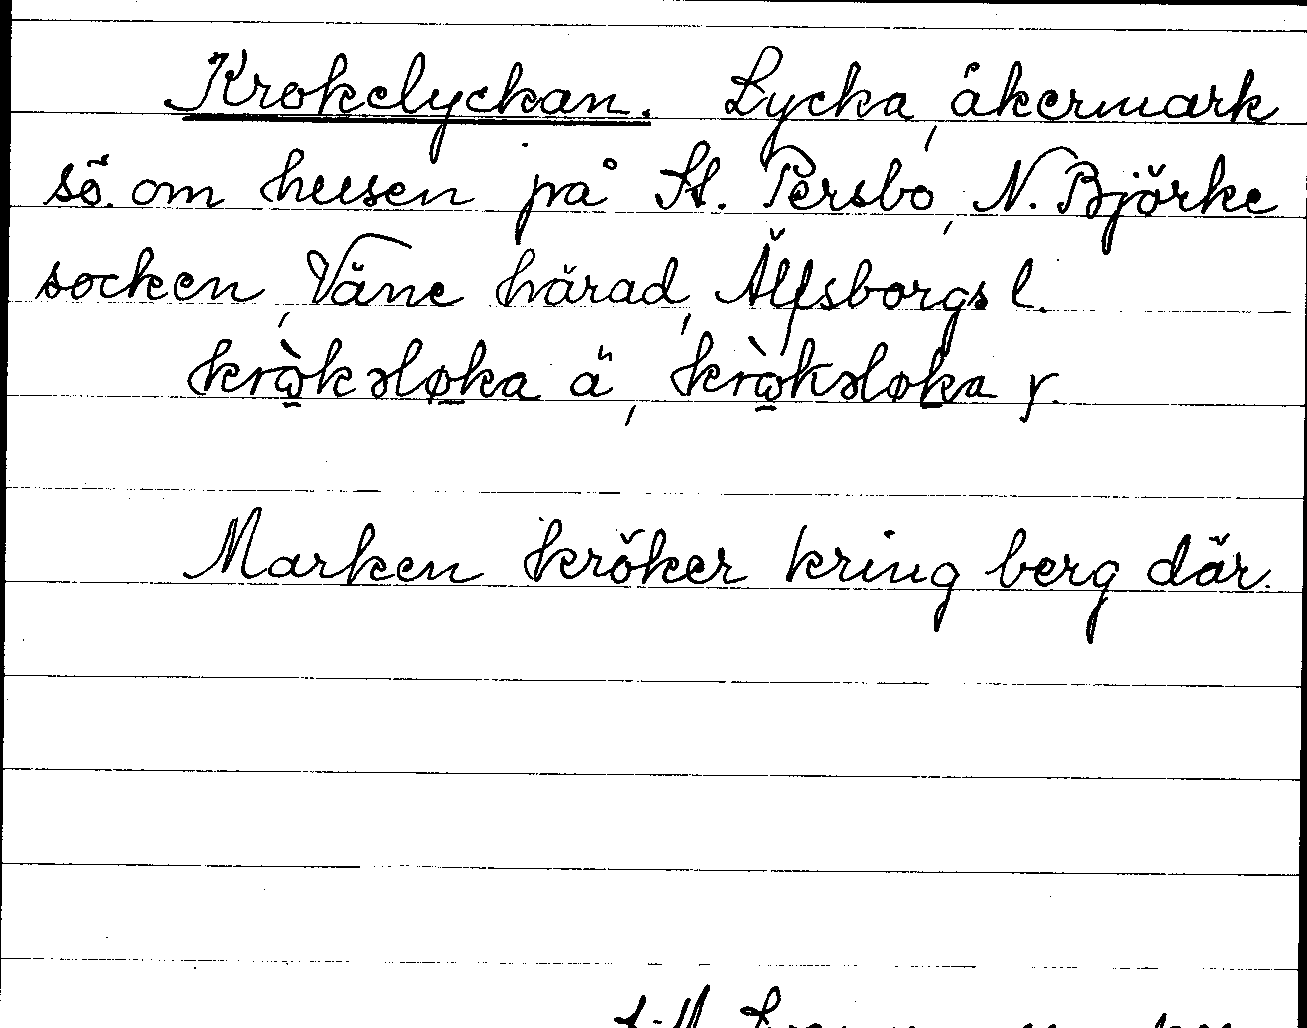 Krokelyckan. Lycka, åkermark
sö. om husen på St. Persbo, N. Björke
socken, Väne härad, Älfsborgs l.
krὼkəløka ä, krὼkəløka y.
Marken kröker kring berg där.